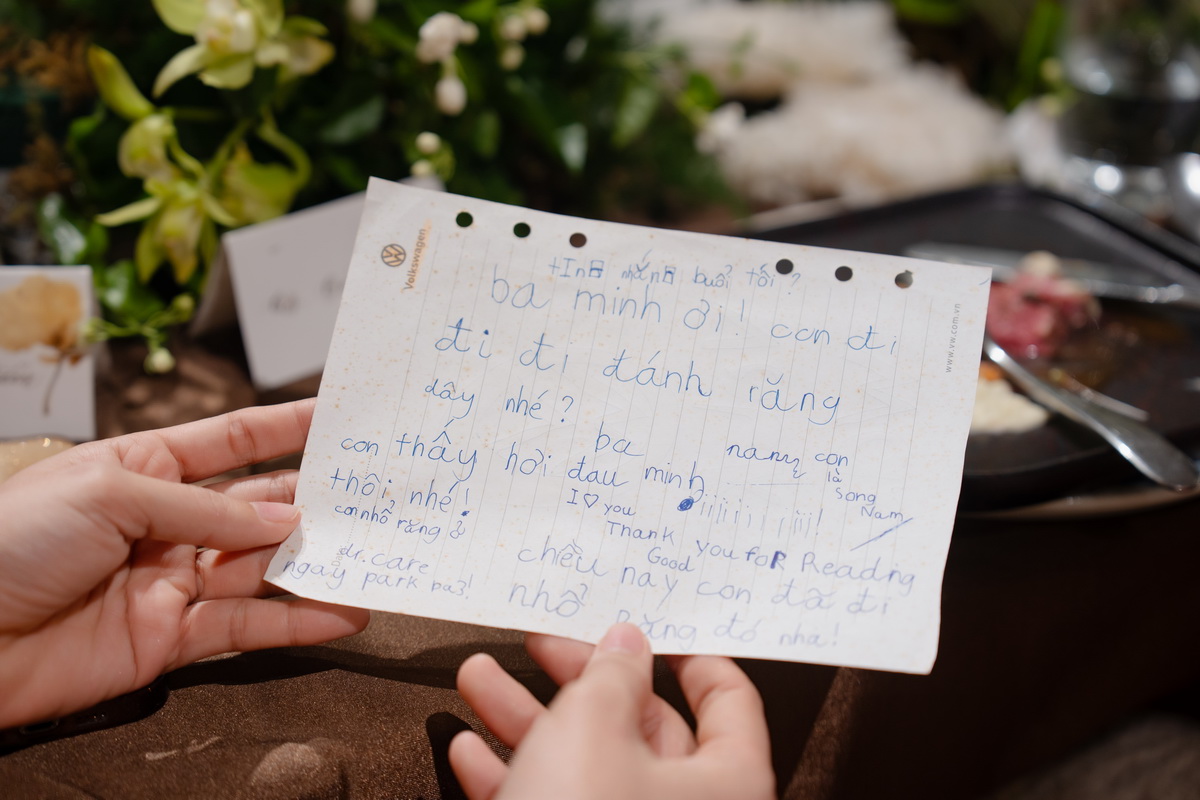 Volkswagen
www.vw.com.vn
tIn mắn buổi tối ?
ba minh ơi! con đi
đi đi đánh răng
dây nhé ?
con thấy hơi đau
ba minh
thôi, nhé!
con nhổ răng ở
dr.care
ngay park ba3!
namy con
là
Song
Nam
I ♡ you
iiiiiiiiii!
Thank you foR Reading
Good
chều nay con đã đi
nhổ Răng đó nha!